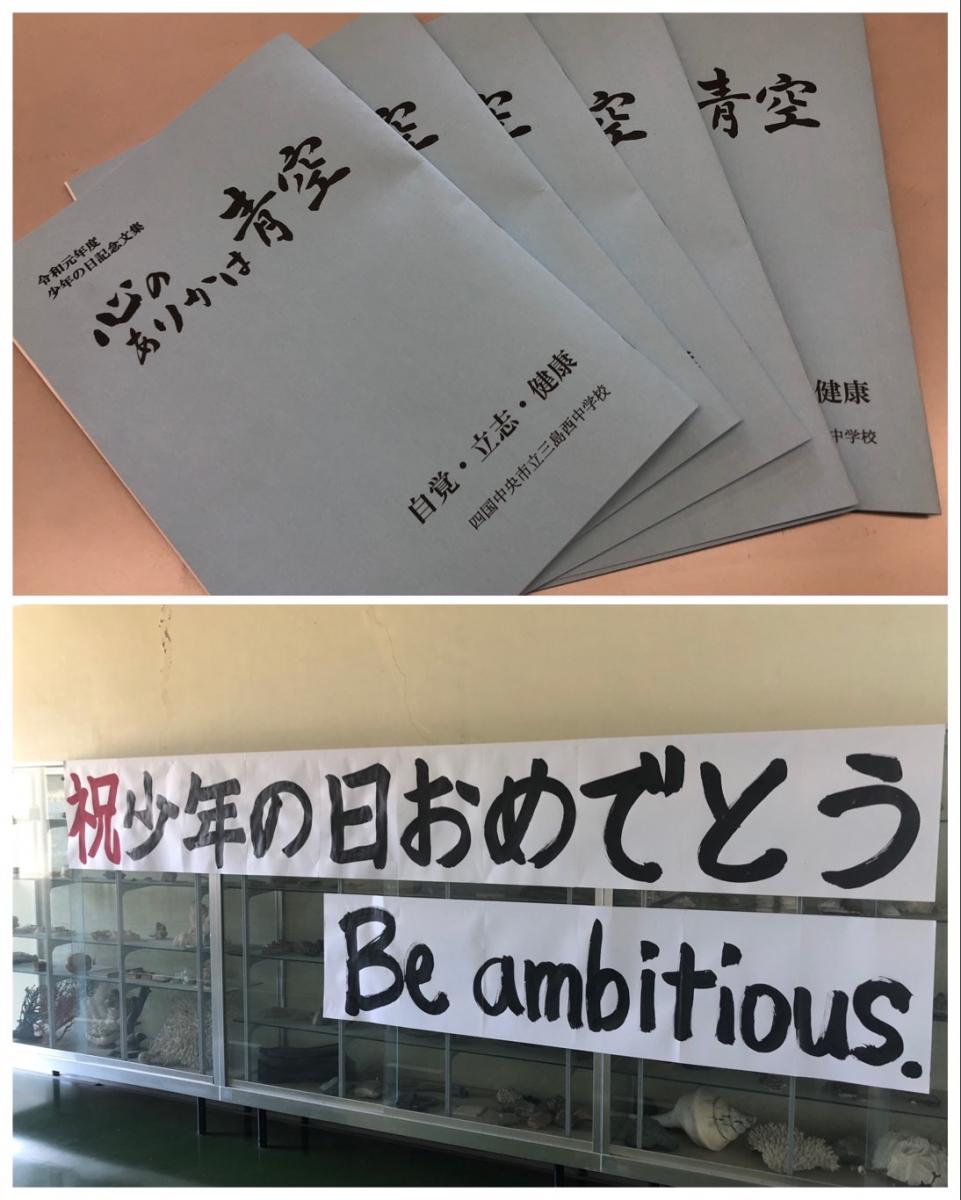 令和元年度
少年の日記念文集
心の
ありかは青空
自覚・立志・健康
四国中央市立三島西中学校
空
空
空
青空
健康
中学校
祝少年の日おめでとう
Be ambitious.